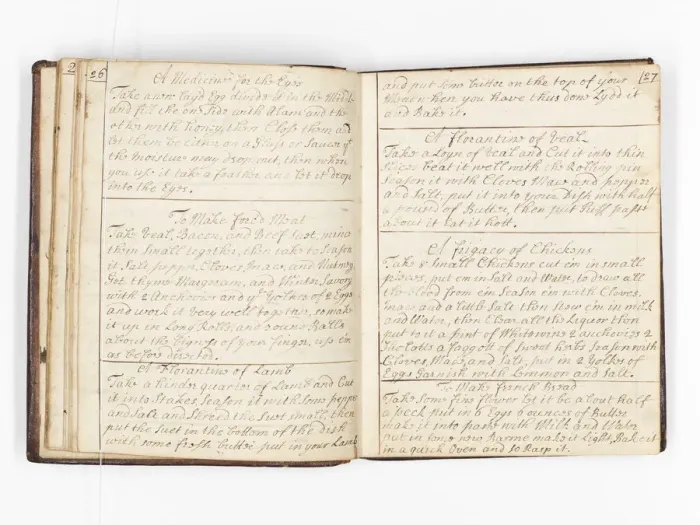 2
26
A Medicine for the Eyes
Take a new layd Egg divide it in the Midle
and fill the on Side with Alam and the
other with honey, then Close them and
let them be either on a Glass or Saucer yt
the moisture may drop out, then when
you use it take a feather and let it drop
into the Eyes.
To Make forc'd Meat
Take Veal, Bacon, and Beef Suet, mince
them Small together, then take to Season
it Salt pepper, Cloves, mace, and Nutmeg,
Get thyme Margoram, and Winter Savory
with 2 Anchoves and ye Yolkes of 2 Eggs
and work it Very well together, so make
it up in Long Rolls, and Round Balls
about the bigness of your finger, use em
as before directed.
A Florantine of Lamb
Take a hinder quarter of Lamb and Cut
it into Stakes, Season it with Some pepper
and Salt and Shred the Suet small, then
put the Suet in the bottom of the dish
with some fresh butter put in your Lamb
27
and put some butter on the top of your
when you have thus done Lydd it
and Bake it.
A Florantine of Veal
Take a Loyn of Veal and Cut it into thin
Slices beat it well with the Rolling pin
Season it with Cloves Mace and pepper
and Salt, put it into your Dish with half
a pound of Butter, then put Puff paste
about it eat it hott.
A frigacy of Chickens
Take 4 Small Chickens cut em in small
pieces, put em in Salt and Water, to draw all
the blood from em Season em with Cloves,
mace and a little Salt then stew em in milk
and Water, then Clear all the Liquor then
put to it a pint of Whitewine 2 Anchovies 2
a faggott of Sweet herbs Season with
Cloves, Mace, and Salt, put in 2 Yolkes of
Eggs Garnish with Lemmon and Salt.
To Make french Bread
Take Some fine flower let it be about half
a peck put in 6 Eggs 6 ounces of Butter
make it into paste with Milk and Water
put in some new Barme make it Light, Bake it
in a quick Oven and so Rasp it.